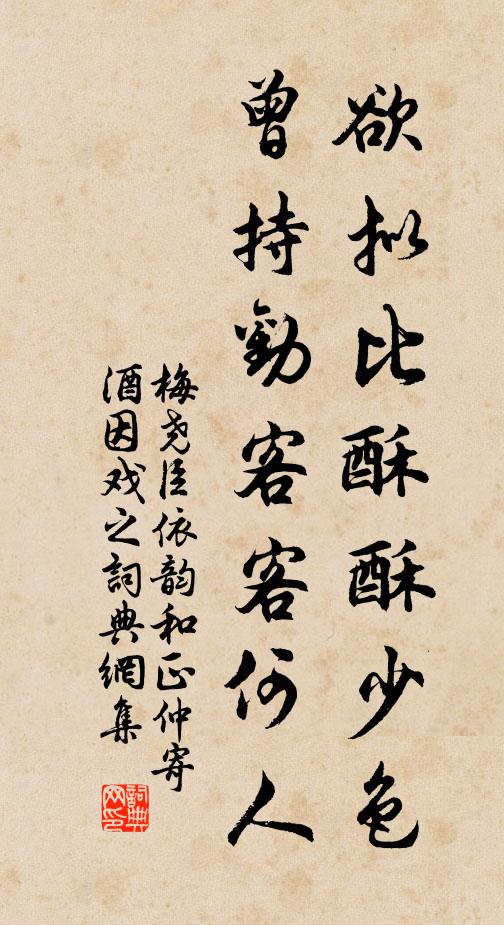 欲拟比酥酥少色
曾持勸客客何人
梅尧臣依韵和正仲寄
酒因戏之詞典網集
詞典网印